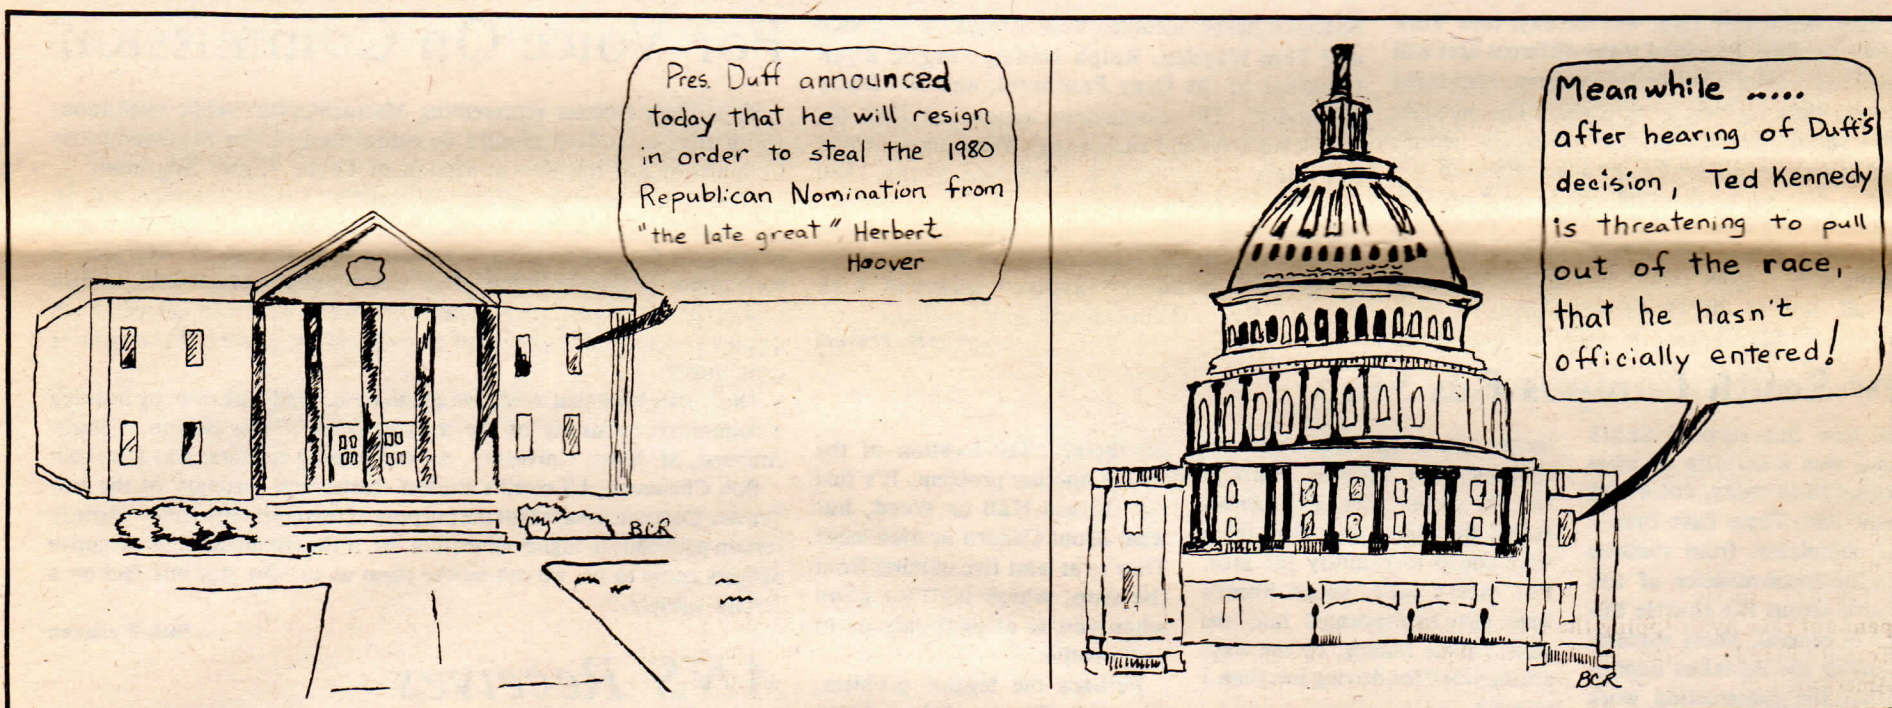 Pres. Duff announced
today that he will resign
in order to steal the 1980
Republican Nomination from
"the late great" Herbert
Hoover
BCR
Meanwhile .....
after hearing of Duff's
decision, Ted Kennedy
is threatening to pull
out of the race,
that he hasn't
officially entered!
BCR